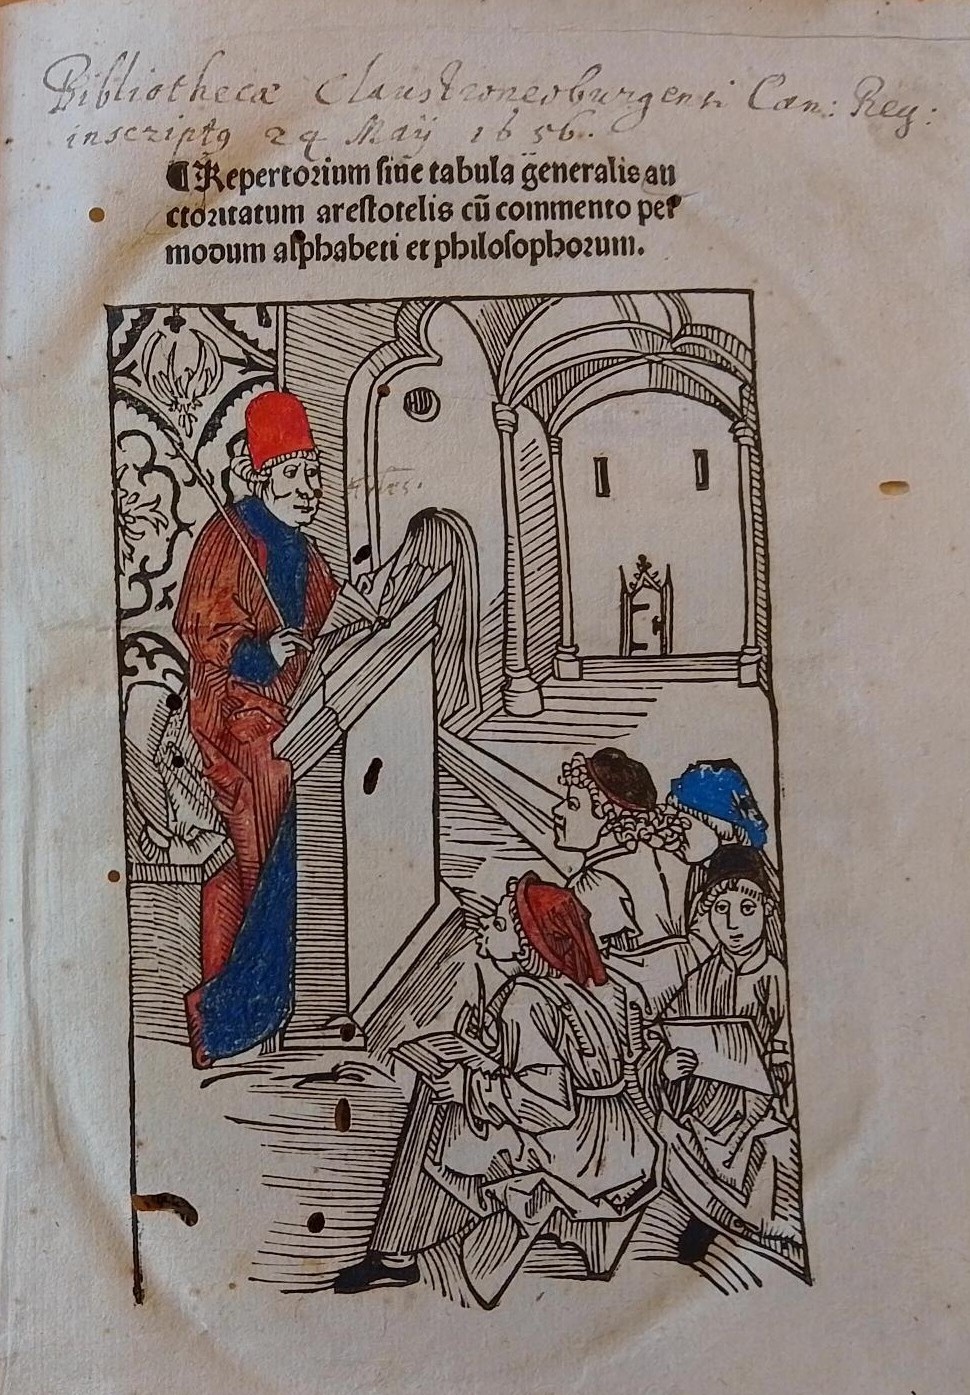 Bibliothecæ Claustroneoburgensi Can: Reg:
inscriptg 24 Maÿ 1656.
¶ Repertorium siue tabula g̃eneralis au
ctoritatum arestotelis cũ commento per
modum alphabeti et philosophorum.